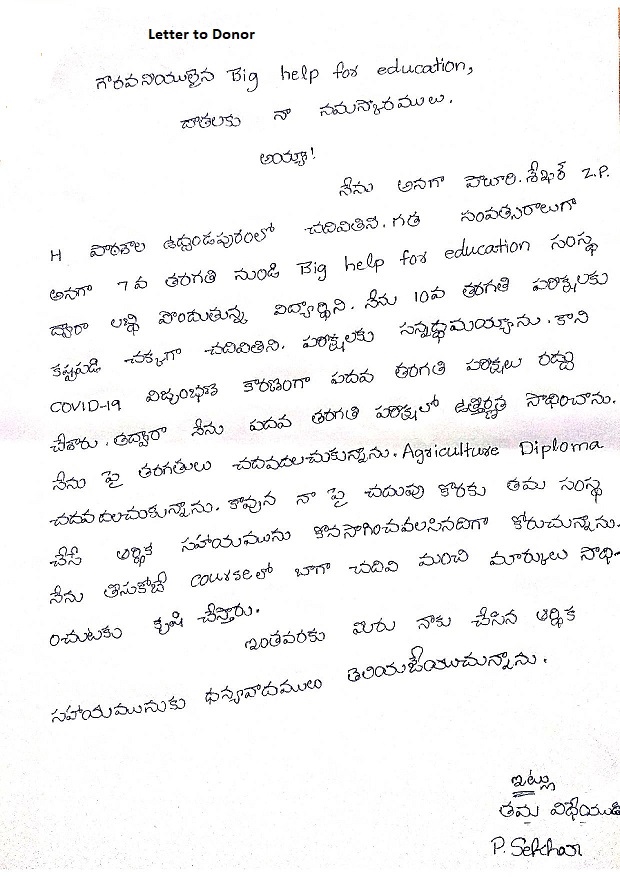 Letter to Donor
గౌరవనీయులైన Big help for education,
దాతలకు నా నమస్కారములు.
అయ్యా!
నేను అనగా పాటూరి.శేఖర్ Z.P.
H పాఠశాల ఉద్దండపురంలో చదివితిని. గత సంవత్సరాలుగా
అనగా 7వ తరగతి నుండి Big help for education సంస్థ
ద్వారా లబ్ధి పొందుతున్న విద్యార్థిని. నేను 10వ తరగతి పరీక్షలకు
కష్టపడి చక్కగా చదివితిని. పరీక్షలకు సన్నద్ధమయ్యాను. కాని
COVID-19 విజృంభణ కారణంగా పదవ తరగతి పరీక్షలు రద్దు
చేశారు. తద్వారా నేను పదవ తరగతి పరీక్షలో ఉత్తీర్ణత సాధించాను.
నేను పై తరగతులు చదవదలచుకున్నాను. Agriculture Diploma
చదవదలచుకున్నాను. కావున నా పై చదువు కొరకు తమ సంస్థ
చేసే ఆర్థిక సహాయమును కొనసాగించవలసినదిగా కోరుచున్నాను.
నేను తీసుకోబోే courseలో బాగా చదివి మంచి మార్కులు సాధి-
ంచుటకు కృషి చేస్తాను.
ఇంతవరకు మీరు నాకు చేసిన ఆర్థిక
సహాయమునుకు ధన్యవాదములు తెలియజేయుచున్నాను.
ఇట్లు
తమ విధేయుడు
P. Sekhar